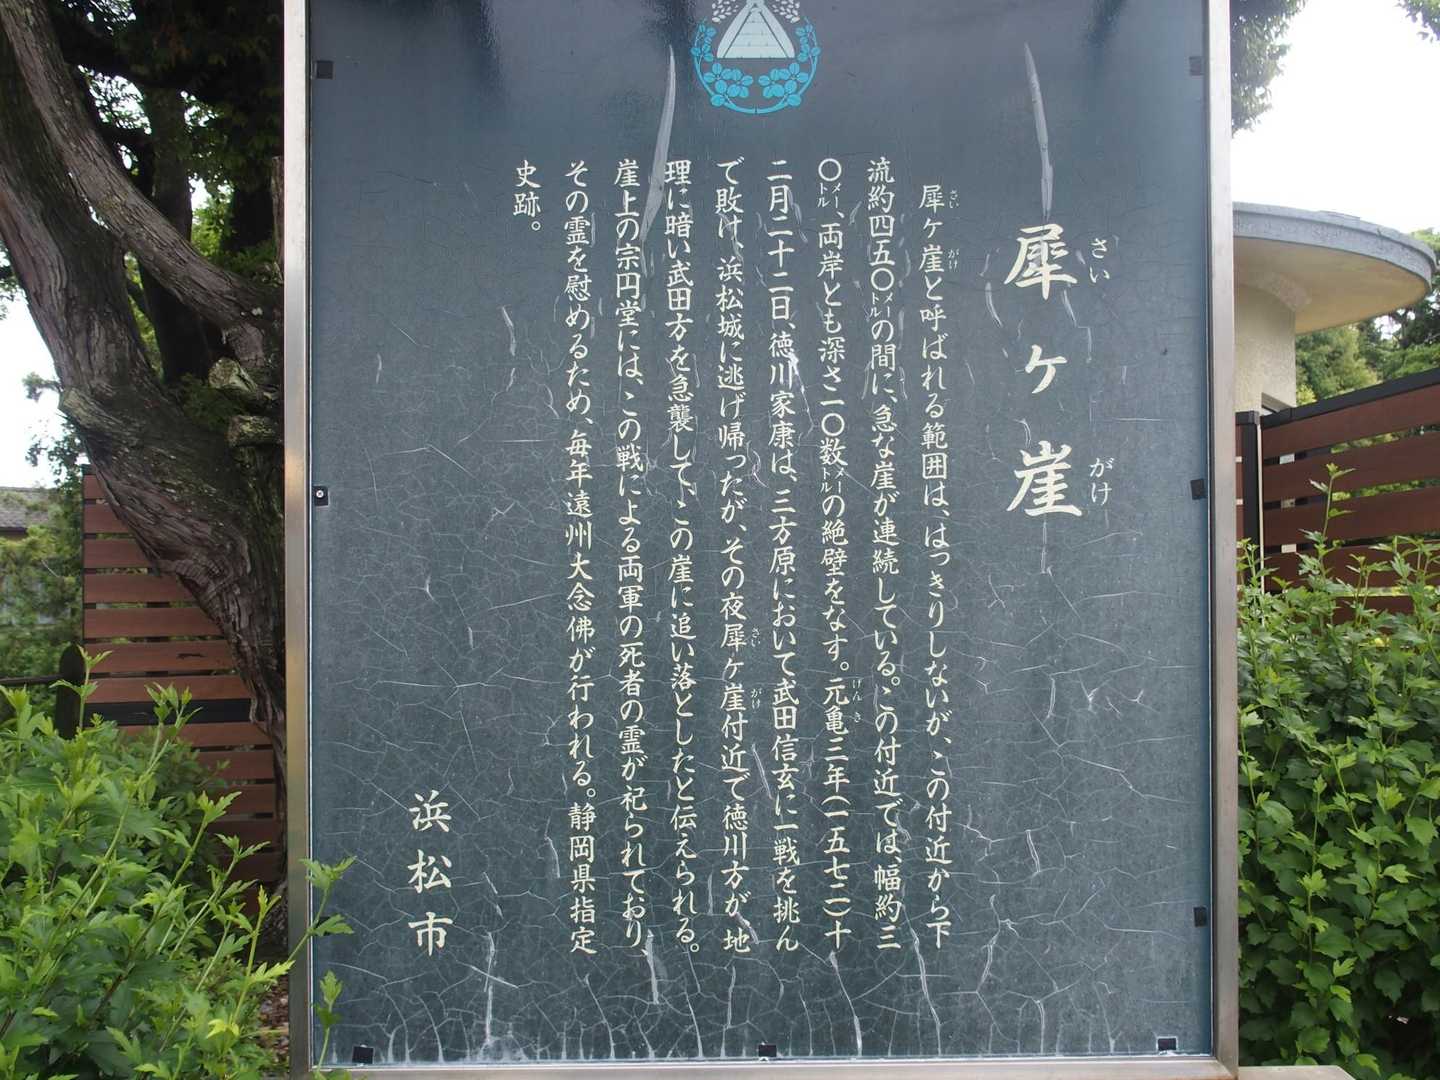 犀ヶ崖
さい
がけ
犀ヶ崖と呼ばれる範囲は、はっきりしないが、この付近から下
さい
がけ
流約四五〇メートルの間に、急な崖が連続している。この付近では、幅約三
〇メートル、両岸とも深さ一〇数メートルの絶壁をなす。元亀三年(一五七二)十
げんき
二月二十二日、徳川家康は、三方原において武田信玄に一戦を挑ん
で敗け、浜松城に逃げ帰ったが、その夜犀ヶ崖付近で徳川方が、地
さい
がけ
理に暗い武田方を急襲して、この崖に追い落としたと伝えられる。
崖上の宗円堂には、この戦による両軍の死者の霊が祀られており、
その霊を慰めるため、毎年遠州大念佛が行われる。静岡県指定
史跡。
浜松市